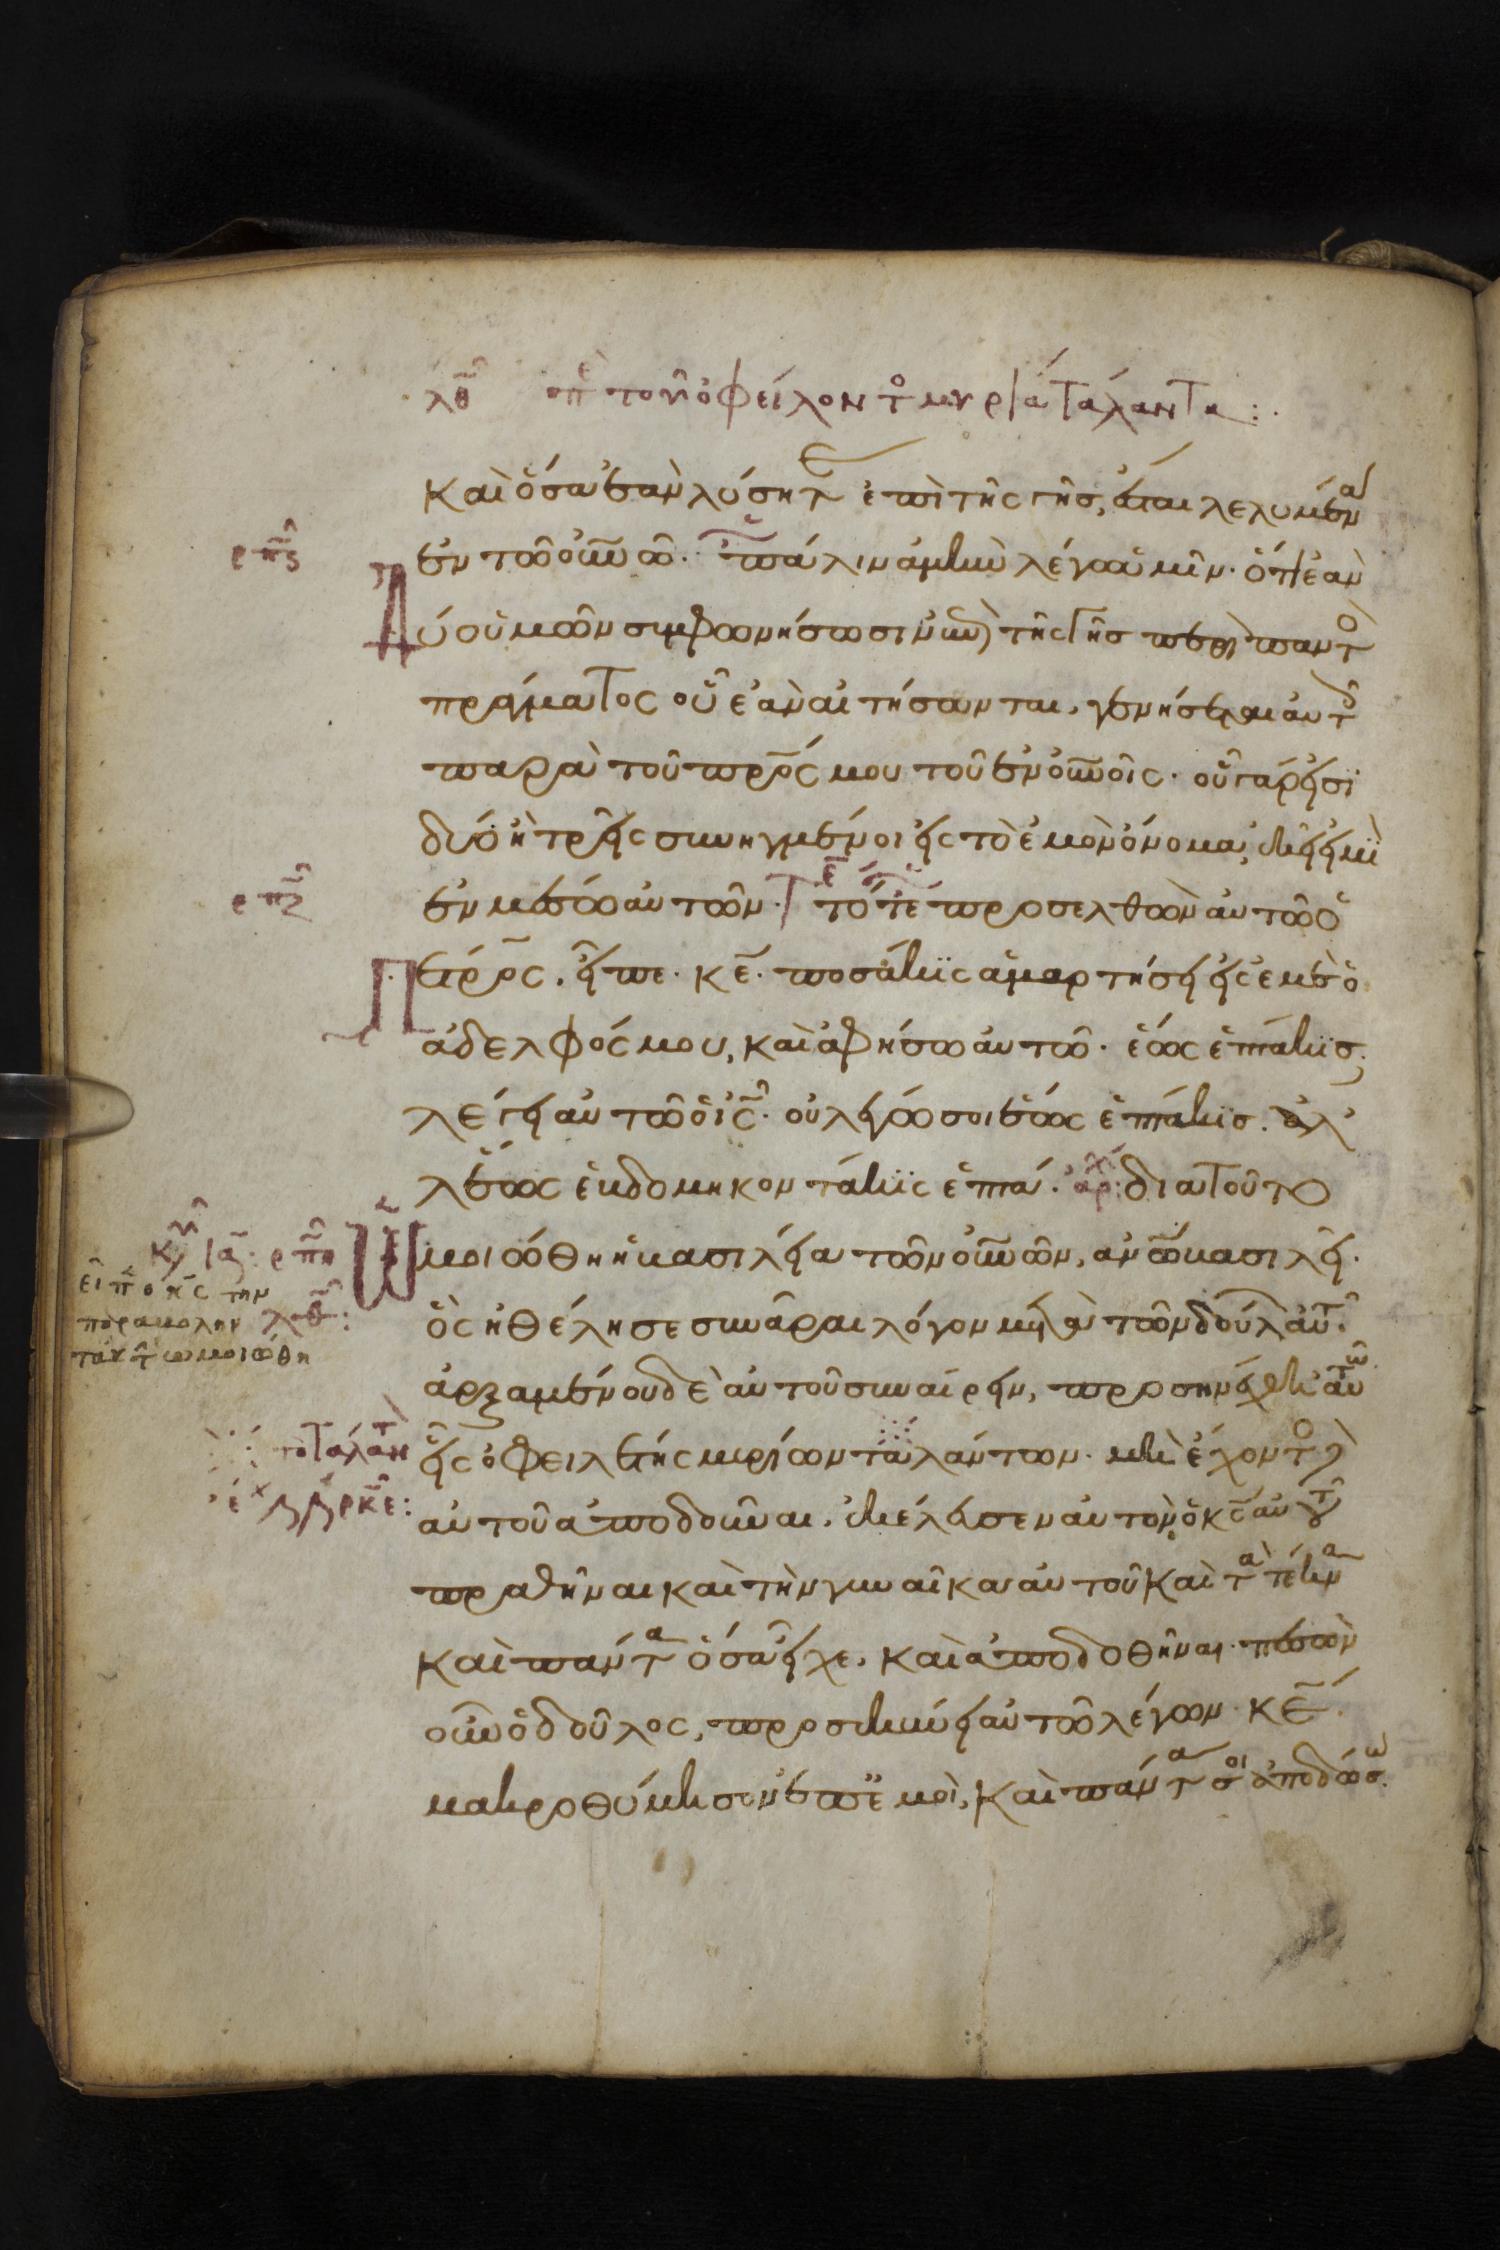 λθ περὶ τοῦ ὀφείλοντος μυρία τάλαντα:
καὶ ὅσα ἐὰν λύσητε ἐπὶ τῆς γῆς, ἔσται λελυμένα
ρπς
ἐν τῶ οὐνῶ. πάλιν ἀμὴν λέγω ὑμῖν. ὅτι ἐὰν
δύο ὑμῶν συμφωνήσωσιν ἐπὶ τῆς γῆς περὶ παντὸς
πράγματος οὗ ἐὰν αἰτήσωνται, γενήσεται αὐτοῖς
παρὰ τοῦ πρς μου τοῦ ἐν οὐνοῖς. οὗ γάρ εἰσι
δύο ἢ τρεῖς συνηγμένοι εἰς τὸ ἐμὸν ὄνομα, ἐκεῖ εἰμὶ
ρπζ
ἐν μέσω αὐτῶν. τότε προσελθὼν αὐτῶ ὁ
Πέτρος, εἶπε. κε. ποσάκις ἁμαρτήσει εἰς ἐμὲ ὁ
ἀδελφός μου, καὶ ἀφήσω αὐτῶ. ἕως ἑπτάκις.
λέγει αὐτῶ ὁ ις. οὐ λέγω σοι ἕως ἑπτάκις. ἀλ
λ' ἕως ἑβδομηκοντάκις ἑπτά. ἀρχ: διὰ τοῦτο
κυ ια: ρπη
ὡμοιώθη ἡ βασιλεία τῶν οὐνῶν, ἀνω βασιλεῖ.
εἶπεν ὁ κς τὴν
παραβολὴν
ταύτην ὡμοιώθη
λθ:
ὃς ἠθέλησε συνᾶραι λόγον μετὰ τῶν δούλων αὐτοῦ.
ἀρξαμένου δὲ αὐτοῦ συναίρειν, προσηνέχθη αὐτῶ
τὸ τάλαντον
εἷς ὀφειλέτης μυρίων ταλάντων. μὴ ἔχοντος δὲ
ρκε:
αὐτοῦ ἀποδοῦναι, ἐκέλευσεν αὐτὸν ὁ κς αὐτοῦ
πραθῆναι καὶ τὴν γυναῖκα αὐτοῦ καὶ τὰ τέκνα
καὶ πάντα ὅσα εἶχε, καὶ ἀποδοθῆναι. πεσὼν
οὖν ὁ δοῦλος, προσεκύνει αὐτῶ λέγων κε.
μακροθύμησον ἐπ' ἐμοὶ, καὶ πάντα σοι ἀποδώσω.